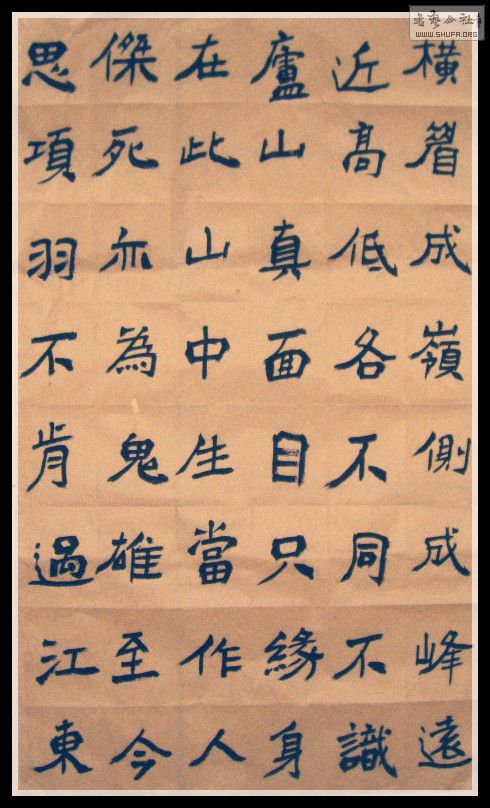 橫看成嶺側成峰遠
近高低各不同不識
廬山真面目只緣身
在此山中生當作人
傑死亦為鬼雄至今
思項羽不肯過江東
WWW.SHUFA.ORG